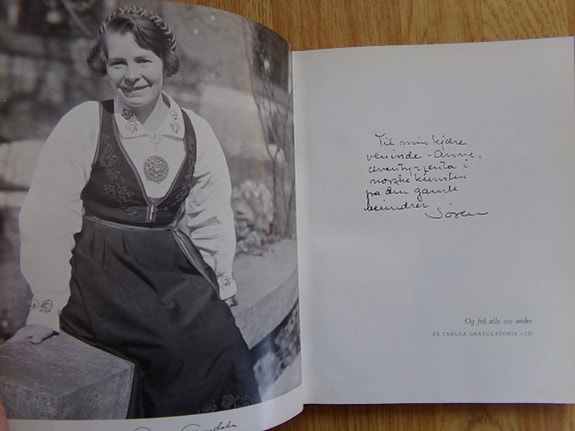 Til min kjære
veninde - Anne,
eventyrjenta i
norske kunsten
fra den gamle
beundrer Søren
Og frå alle oss andre
PÅ TABULA GRATULATORIA s. 125